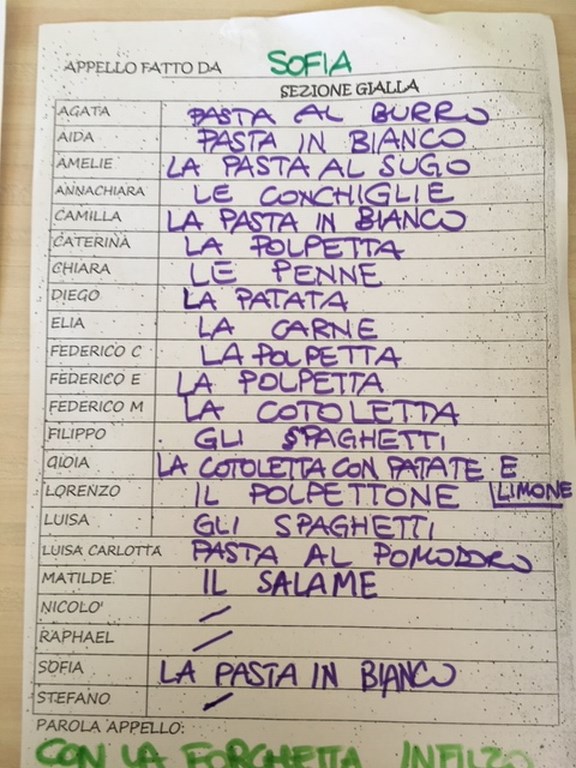 APPELLO FATTO DA SOFIA
SEZIONE GIALLA
AGATA PASTA AL BURRO
AIDA PASTA IN BIANCO
AMELIE LA PASTA AL SUGO
ANNACHIARA LE CONCHIGLIE
CAMILLA LA PASTA IN BIANCO
CATERINA LA POLPETTA
CHIARA LE PENNE
DIEGO LA PATATA
ELIA LA CARNE
FEDERICO C LA POLPETTA
FEDERICO E LA POLPETTA
FEDERICO M LA COTOLETTA
FILIPPO GLI SPAGHETTI
GIOIA LA COTOLETTA CON PATATE E
LIMONE
LORENZO IL POLPETTONE
LUISA GLI SPAGHETTI
LUISA CARLOTTA PASTA AL POMODORO
MATILDE IL SALAME
NICOLO' /
RAPHAEL /
SOFIA LA PASTA IN BIANCO
STEFANO /
PAROLA APPELLO:
CON LA FORCHETTA INFILZO